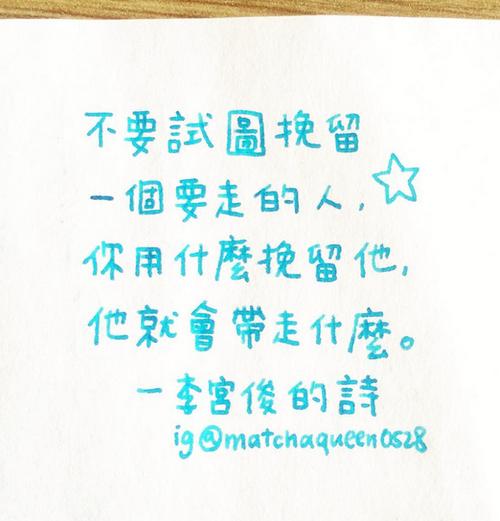 不要試圖挽留
一個要走的人,
你用什麼挽留他,
他就會帶走什麼。
一李宮俊的詩
ig@matchaqueen0528